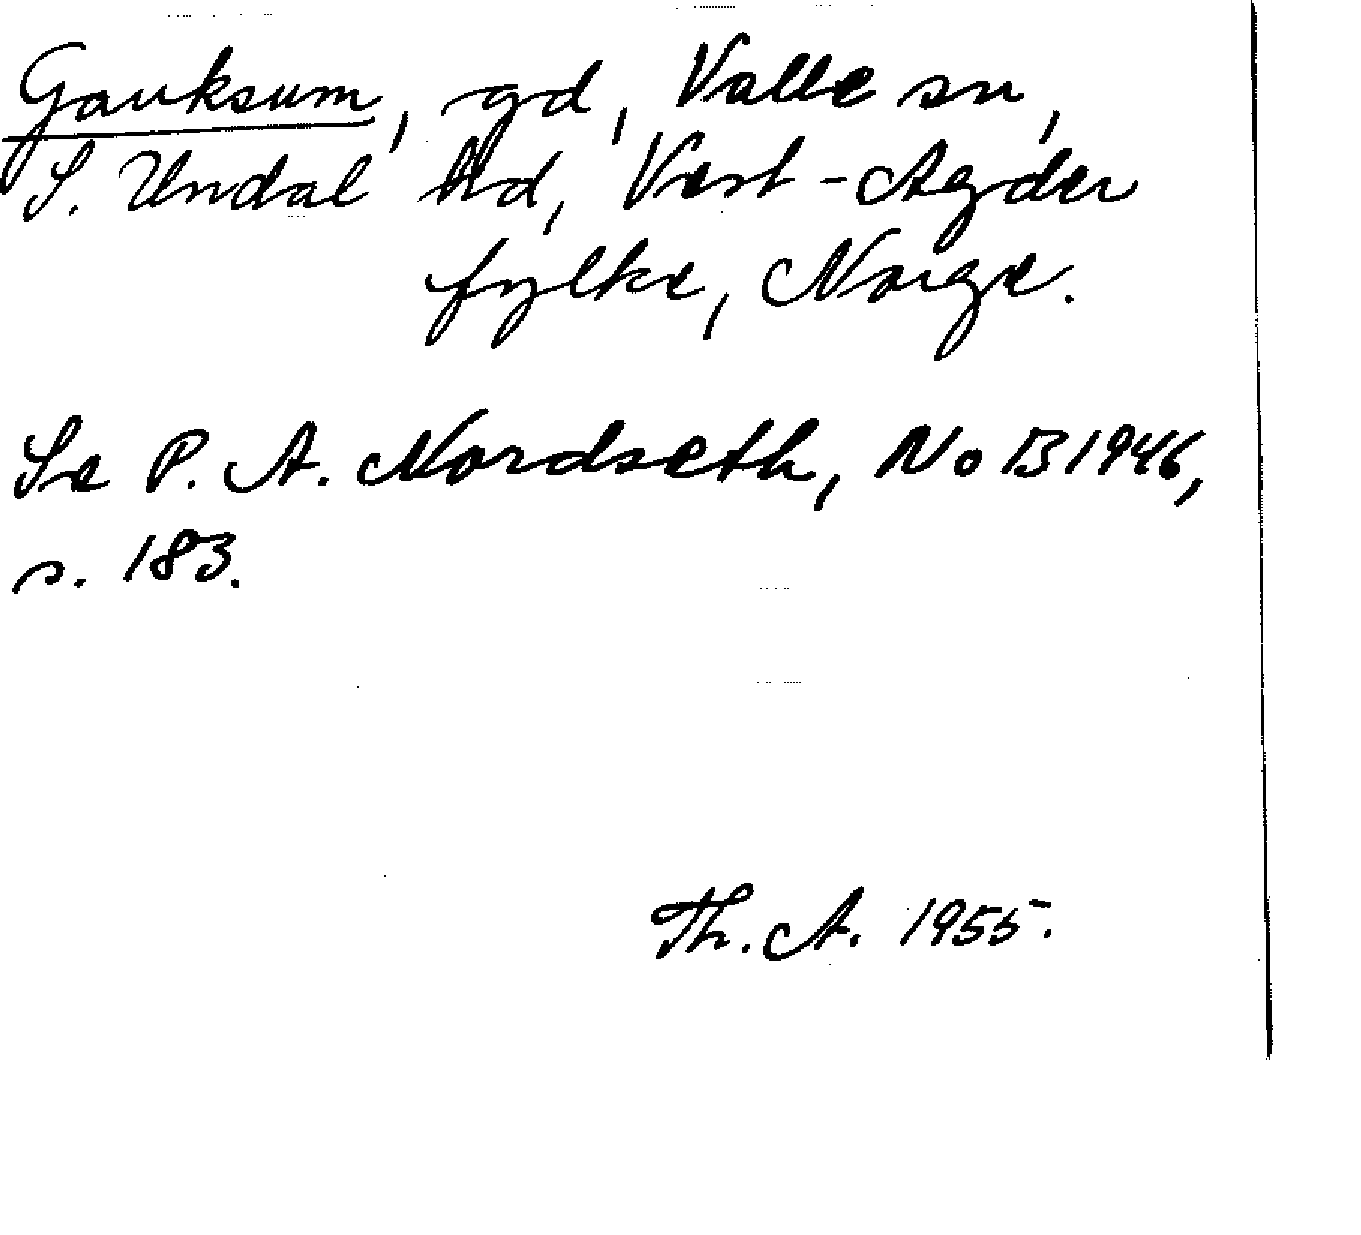 Gauksum, gd, Valle sn,
S. Undal hd, Vest-Agder
fylke, Norge.
Se P. A. Nordseth, NoB 1946,
s. 183.
Th. A. 1955.